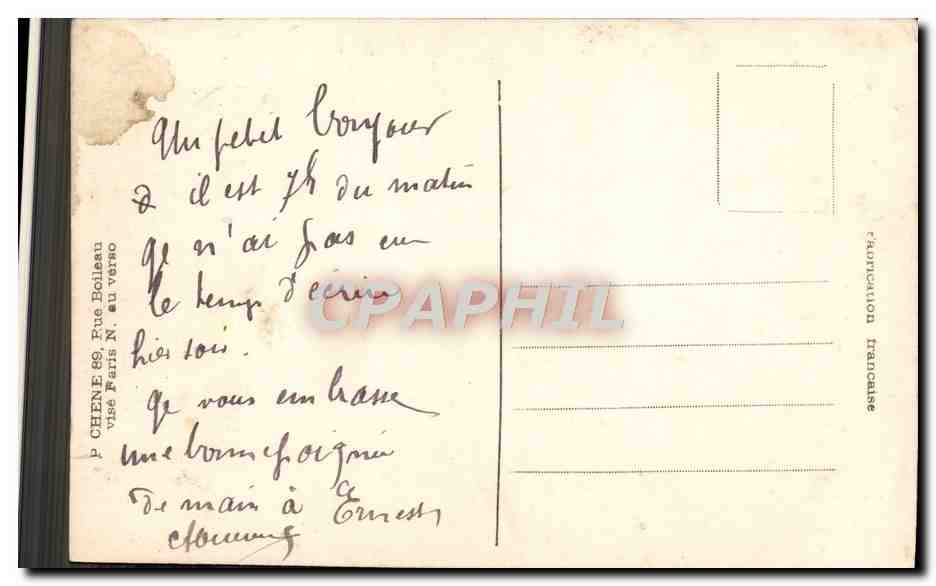 Un petit bonjour
il est 7h du matin
Je n'ai pas eu
le temps d'écrire
hier soir.
Je vous embrasse
une bonne poignée
de main à Ernest
P CHENE 89, Rue Boileau
visé Paris N. au verso
Fabrication française
CPAPHIL